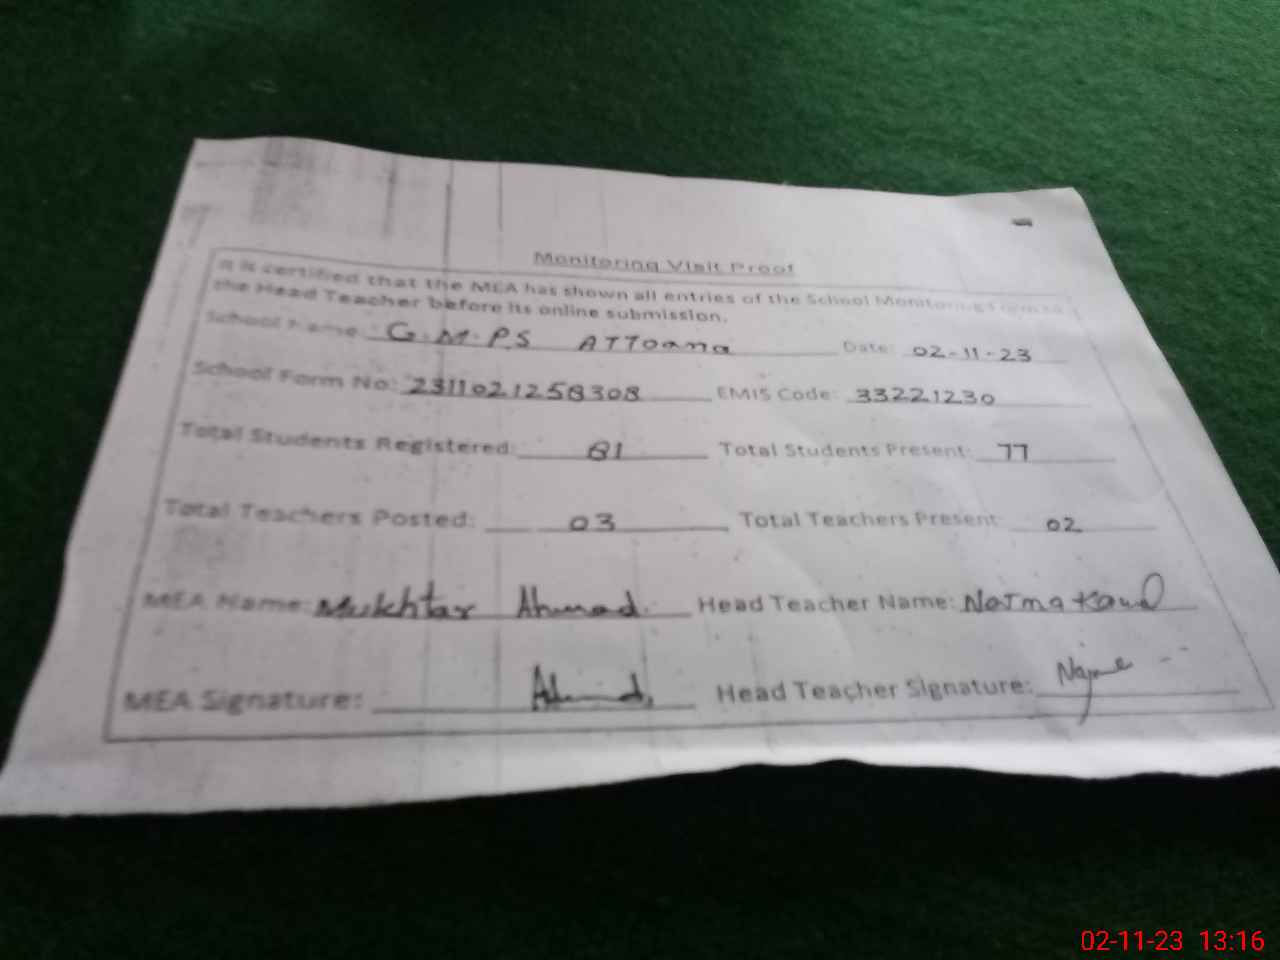 Monitoring Visit Proof
It is certified that the MEA has shown all entries of the School Monitoring Form to
the Head Teacher before its online submission.
School Name: G.M.P.S ATTOana Date: 02-11-23
School Form No: 2311021258308 EMIS Code: 33221230
Total Students Registered: 81 Total Students Present: 77
Total Teachers Posted: 03 Total Teachers Present: 02
MEA Name: Mukhtar Ahmad. Head Teacher Name: Najma
MEA Signature: Head Teacher Signature: Najme
02-11-23 13:16